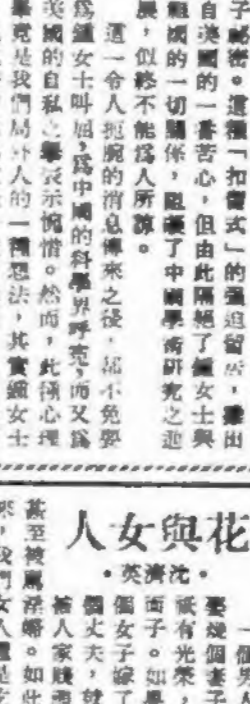 子秘密。這種「扣留式」的強迫留居，露出
自英國的一番苦心，但由此隔絕了鍾女士與
祖國的一切關係，阻礙了中國學術研究之進
展，似終不能爲人所諒。
這一令人扼腕的消息傳來之後，都不免要
爲鍾女士叫屈，爲中國的科學界呼冤，而又爲
英國的自私之舉表示惋惜。然而，此種心理
畢竟是我們局外人的一種想法，其實鍾女士
花與女人
•沈濟英•
一個男人
娶幾個妻子
祇有光榮，
面子。如果
個女子嫁了
個丈夫，就
被人家賤視
甚至被罵淫婦。如此
來，我們女人還是